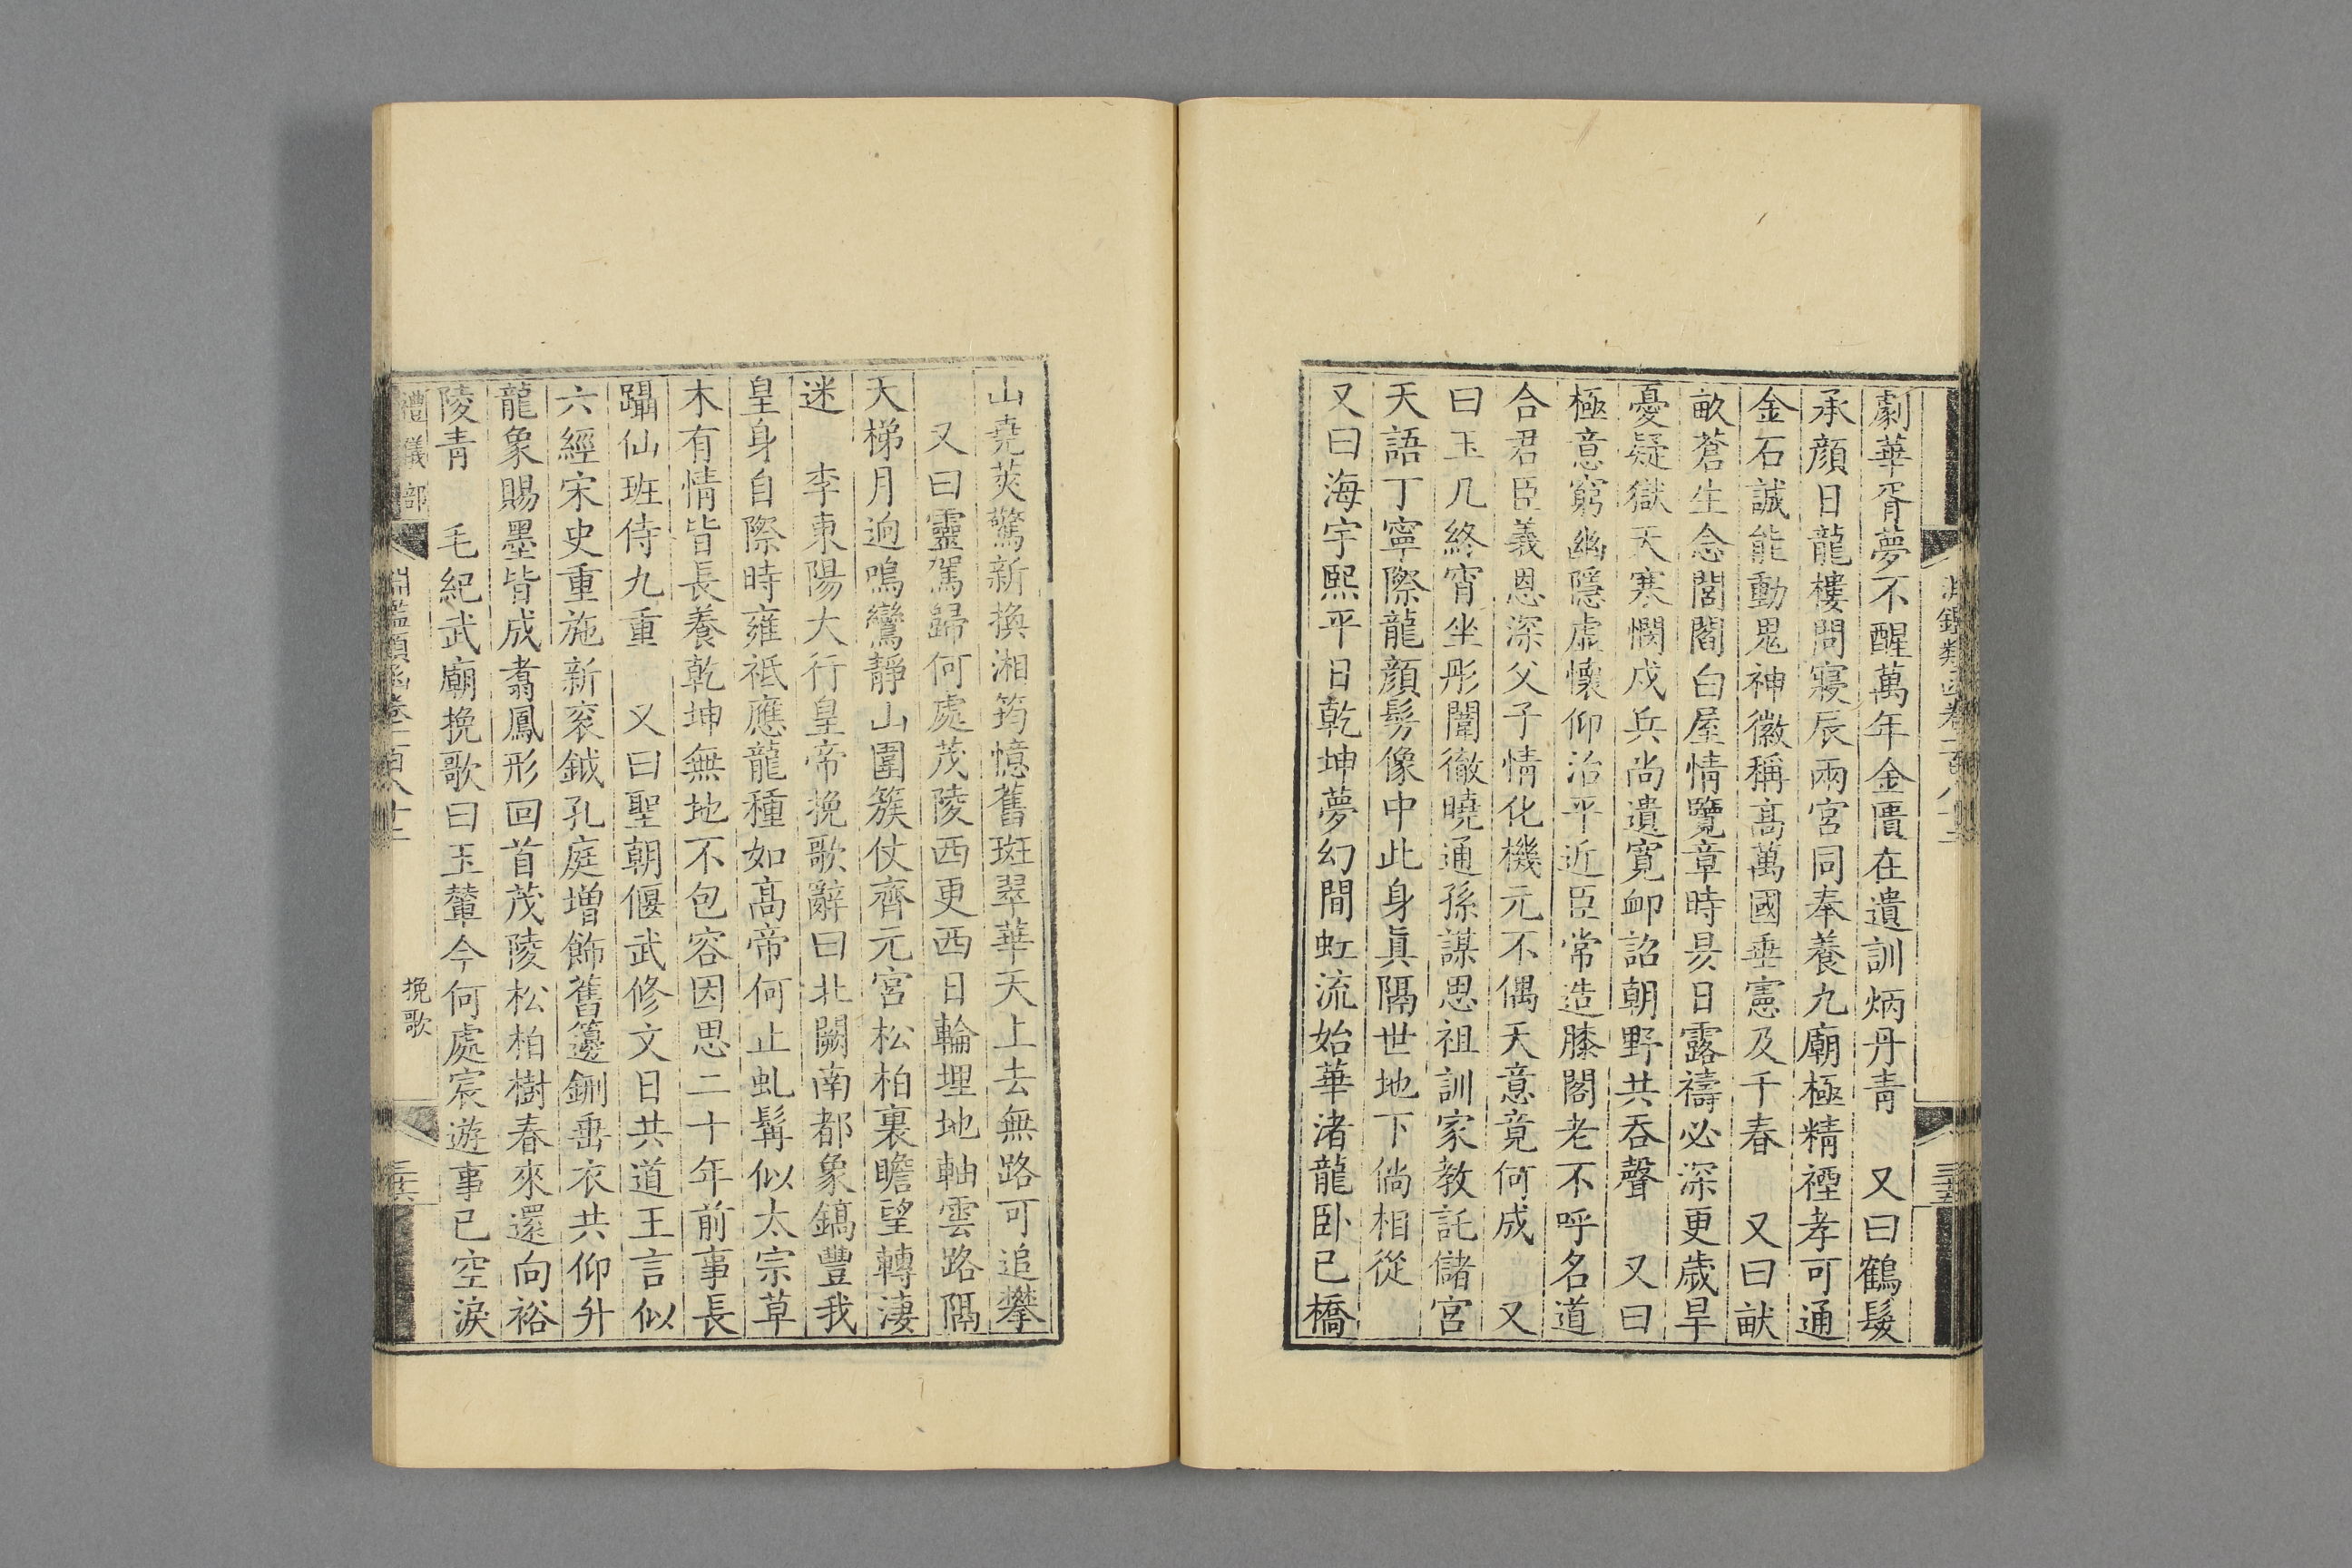 劇華胥夢不醒萬年金匱在遺訓炳丹青　又曰鶴髮
承顏日龍樓問寢辰兩宮同奉養九廟極精禋孝可通
金石誠能動鬼神徽稱高萬國垂憲及千春　又曰畎
畝蒼生念閭閻白屋情覽章時昃日露禱必深更歲旱
憂疑獄天寒憫戍兵尚遺寬卹詔朝野共吞聲　又曰
極意窮幽隱虛懷仰治平近臣常造膝閣老不呼名道
合君臣義恩深父子情化機元不偶天意竟何成　又
曰玉几終宵坐彤闈徹曉通孫謀思祖訓家教託儲宮
天語丁寧際龍顏髣像中此身眞隔世地下倘相從
又曰海宇熙平日乾坤夢幻間虹流始華渚龍卧已橋
山堯蓂驚新換湘筠憶舊斑翠華天上去無路可追攀
又曰靈駕歸何處茂陵西更西日輪埋地軸雲路隔
天梯月逈鳴鸞靜山圍簇仗齊元宮松柏裏瞻望轉淒
迷　李東陽大行皇帝挽歌辭曰北闕南都象鎬豐我
皇身自際時雍祇應龍種如高帝何止虬髯似太宗草
木有情皆長養乾坤無地不包容因思二十年前事長
躡仙班侍九重　又曰聖朝偃武修文日共道王言似
六經宋史重施新袞鉞孔庭增飾舊籩鉶垂衣共仰升
龍象賜墨皆成翥鳳形回首茂陵松柏樹春來還向裕
陵青　毛紀武廟挽歌曰玉輦今何處宸遊事已空淚
禮儀部　淵鑑類函卷一百八十二　挽歌　三十六